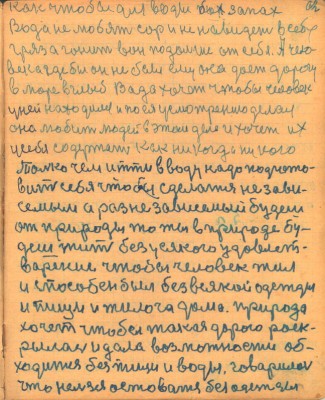 как чтобы для воды был запах
Вода не любят сор и не навидит в себе
грязь гонит вон подальше от себя. А чело
века где бы он не был ему она дает дорогу
в море в глыб Вада хочет чтобы человек
у ней находился и по ея усмотрению делал
она любит людей в этом деле и хочет их
у себя содержать как никогда ни кого
Только чем итти в воду надо подгото-
вить себя чтобы сделатся незави-
семым а раз не зависемый будет
от природы то ты в природе бу-
деш жить без усякого здовлет-
варения чтобы человек жил
и способен был без всякой одежды
и пищи и жилога дома. природа
хочет чтобы такая дорога раск-
рылась и дала возможности об-
ходится без пищи и воды, говарилось
что нельзя оставатся без одежды